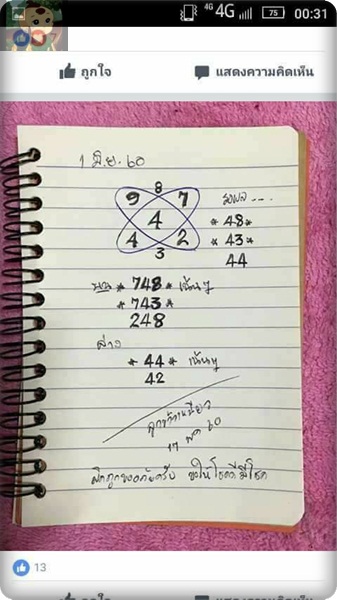 4G 4G 75 00:31
ถูกใจ แสดงความคิดเห็น
1 มิ.ย. 60
8
9 7
4
4 2
3
*48*
*43*
44
บน *748* เน้นๆ
*743*
248
ล่าง
*44* เน้นๆ
42
17 พค 60
ผิดถูกขออภัยครับ ขอให้โชคดีมีโชค
13
ถูกใจ แสดงความคิดเห็น